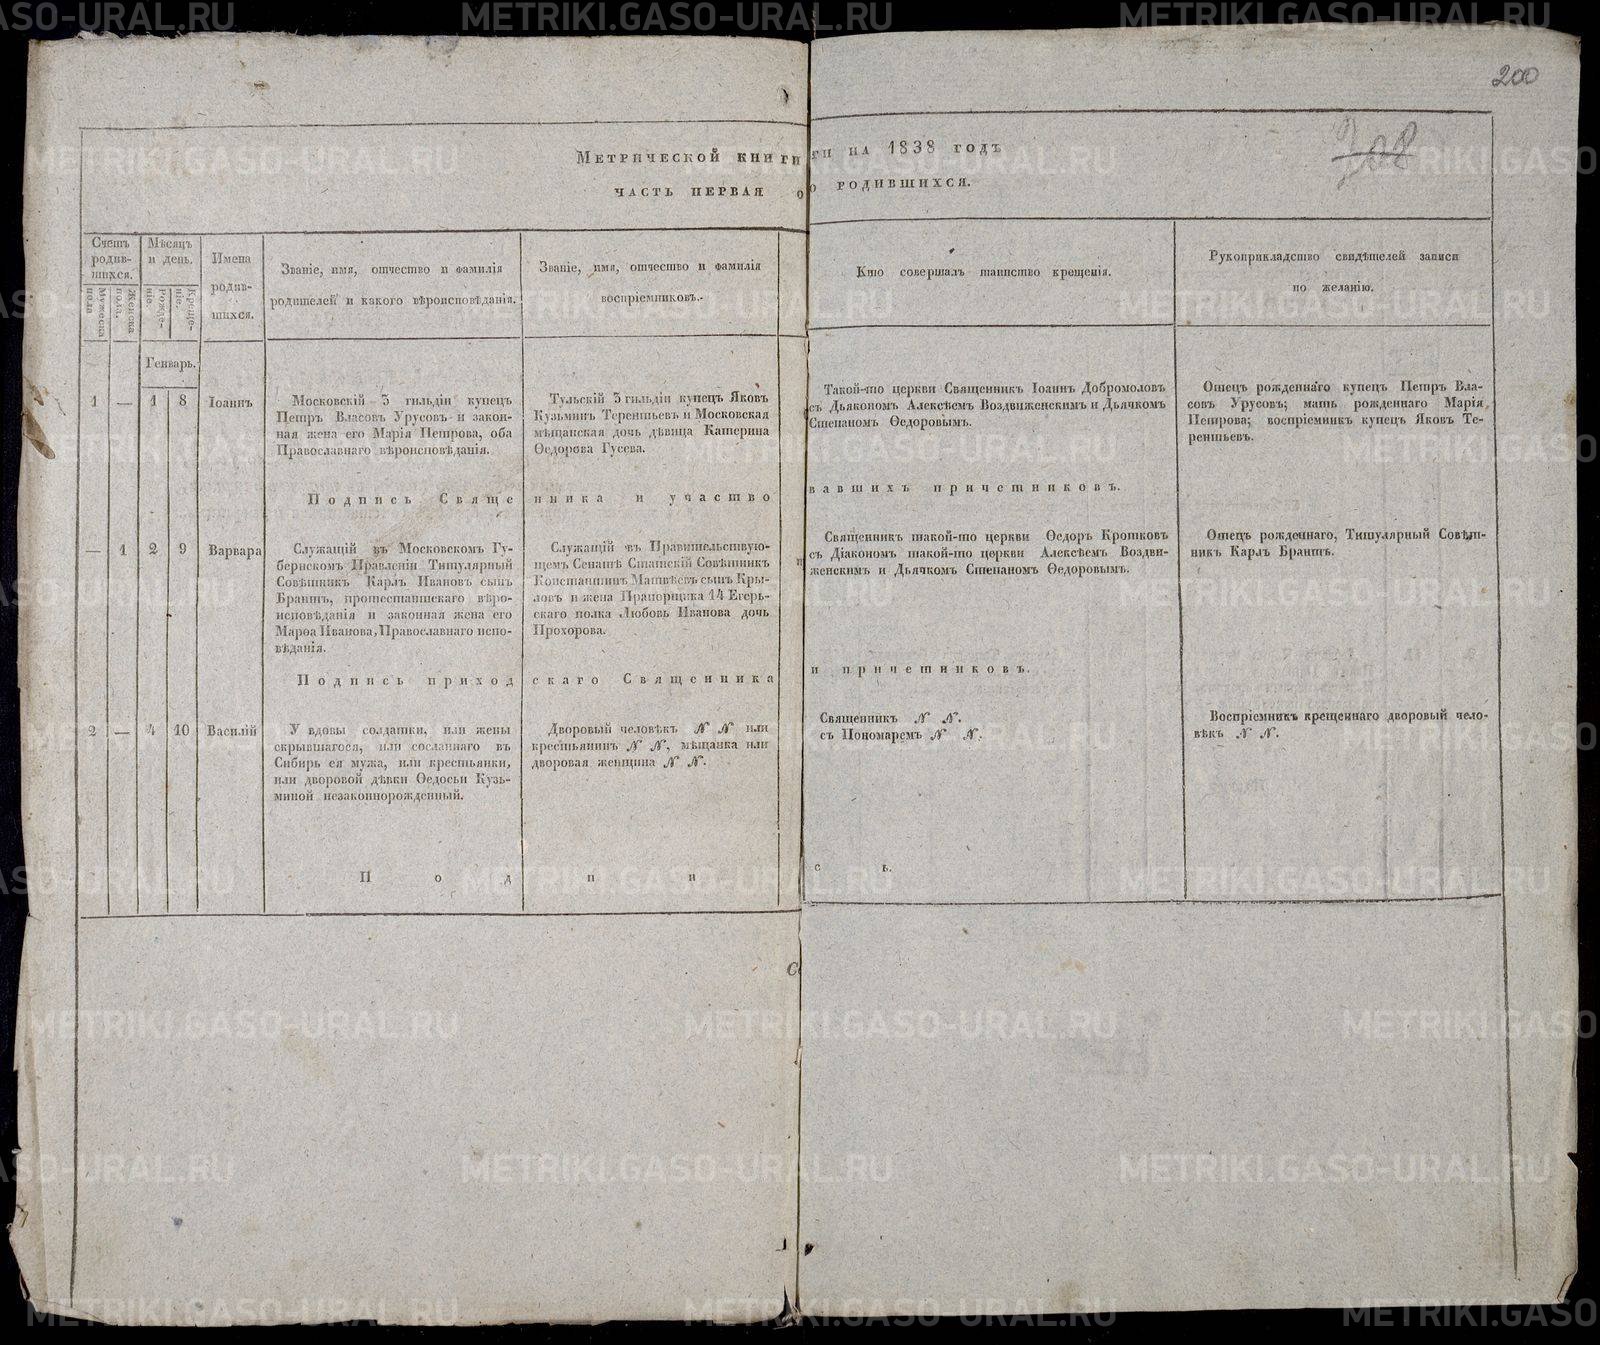 200
208
Метрической книги на 1838 годъ
часть первая о родившихся.
Счетъ родив-шихся.
Мужеска пола
Женска пола.
Мѣсяцъ и день.
Рожде-ніе.
Креще-ніе.
Имена родив-шихся.
Званіе, имя, отчество и фамилія
родителей и какого вѣроисповѣданія.
Званіе, имя, отчество и фамилія
воспріемниковъ.
Кто совершалъ таинство крещенія.
Рукоприкладство свидѣтелей записи
по желанію.
Генварь.
1 — 1 8 Іоаннъ
Московскій 3 гильдіи купецъ
Петръ Власовъ Урусовъ и закон-
ная жена его Марія Петрова, оба
Православнаго вѣроисповѣданія.
Тульскій 3 гильдіи купецъ Яковъ
Кузьминъ Терентьевъ и Московская
мѣщанская дочь дѣвица Катерина
Ѳедорова Гусева.
Такой-то церкви Священникъ Іоаннъ Добромоловъ
съ Дьякономъ Алексѣемъ Воздвиженскимъ и Дьячкомъ
Степаномъ Ѳедоровымъ.
Отецъ рожденнаго купецъ Петръ Вла-
совъ Урусовъ; мать рожденнаго Марія
Петрова; воспріемникъ купецъ Яковъ Те-
рентьевъ.
Подпись Священника и участвовавшихъ причетниковъ.
— 1 2 9 Варвара
Служащій въ Московскомъ Гу-
бернскомъ Правленіи Титулярный
Совѣтникъ Карлъ Ивановъ сынъ
Брантъ, протестантскаго вѣро-
исповѣданія и законная жена его
Марѳа Иванова, Православнаго испо-
вѣданія.
Служащій въ Правительствую-
щемъ Сенатѣ Статскій Совѣтникъ
Константинъ Матвѣевъ сынъ Кры-
ловъ и жена Прапорщика 14 Егерь-
скаго полка Любовь Иванова дочь
Прохорова.
Священникъ такой-то церкви Ѳедоръ Кротковъ
съ Діакономъ такой-то церкви Алексѣемъ Воздви-
женскимъ и Дьячкомъ Степаномъ Ѳедоровымъ.
Отецъ рожденнаго, Титулярный Совѣт-
никъ Карлъ Брантъ.
Подпись приходскаго Священника и причетниковъ.
2 — 4 10 Василій
У вдовы солдатки, или жены
скрывшагося, или сосланнаго въ
Сибирь ея мужа, или крестьянки,
или дворовой дѣвки Ѳедосьи Кузь-
миной незаконнорожденный.
Дворовый человѣкъ N N или
крестьянинъ N N, мѣщанка или
дворовая женщина N N.
Священникъ N N.
съ Пономаремъ N N.
Воспріемникъ крещеннаго дворовый чело-
вѣкъ N N.
Подпись.
METRIKI.GASO-URAL.RU